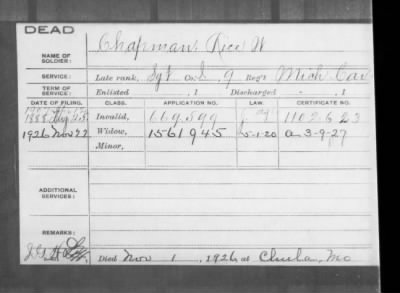 DEAD
NAME OF SOLDIER: Chapman, Rice W
SERVICE: Late rank, Sgt Co. L, 9 Reg't Mich Cav
TERM OF SERVICE: Enlisted , 1 Discharged , 1
DATE OF FILING. CLASS. APPLICATION NO. LAW. CERTIFICATE NO.
1888 Invalid, 669,599 1102623
1926 Nov 22 Widow, 1561945 5-1-20 a 3-9-27
Minor,
ADDITIONAL SERVICES:
REMARKS:
Died Nov 1, 1926, at Chula, Mo